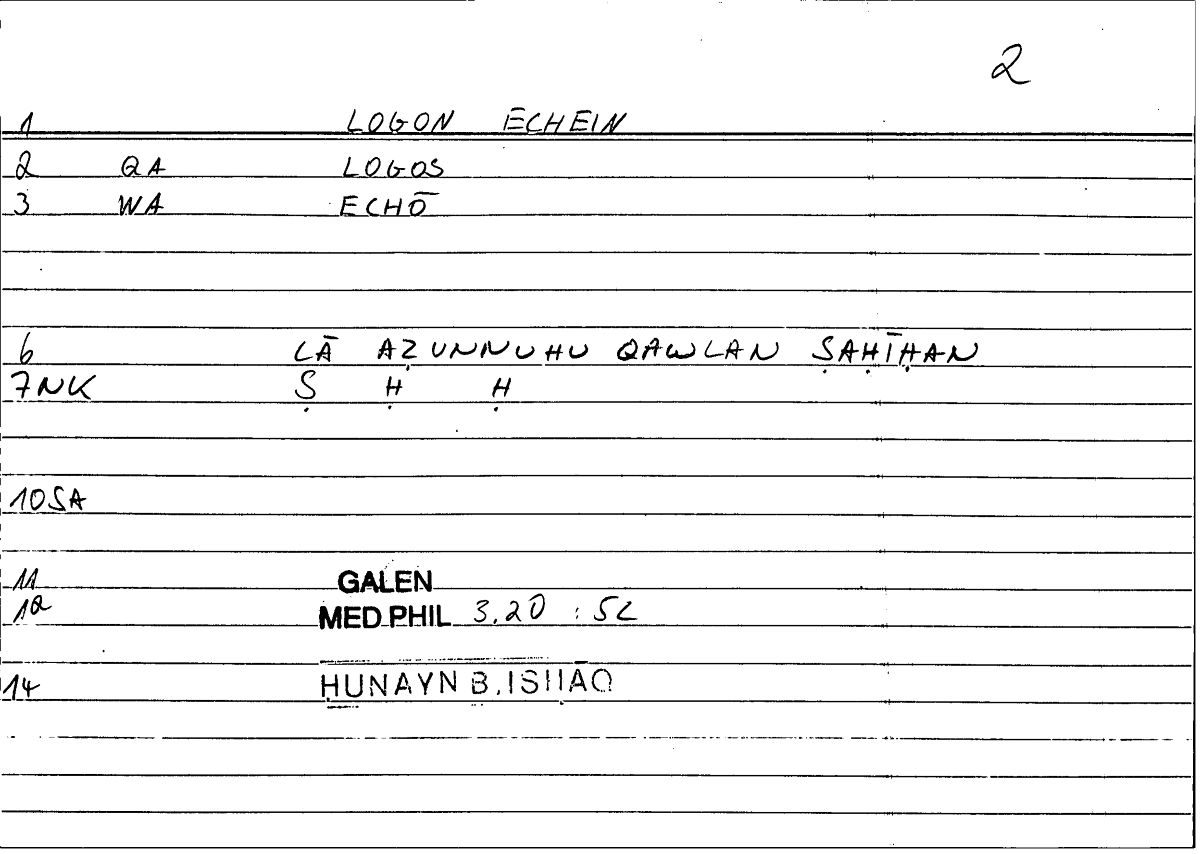 2
1 LOGON ECHEIN
2 QA LOGOS
3 WA ECHŌ
6 LĀ AẒUNNUHU QAWLAN ṢAḤĪḤAN
7NK Ṣ Ḥ Ḥ
10SA
11 GALEN
12 MED PHIL 3.20 : 5L
14 ḤUNAYN B. ISḤĀQ